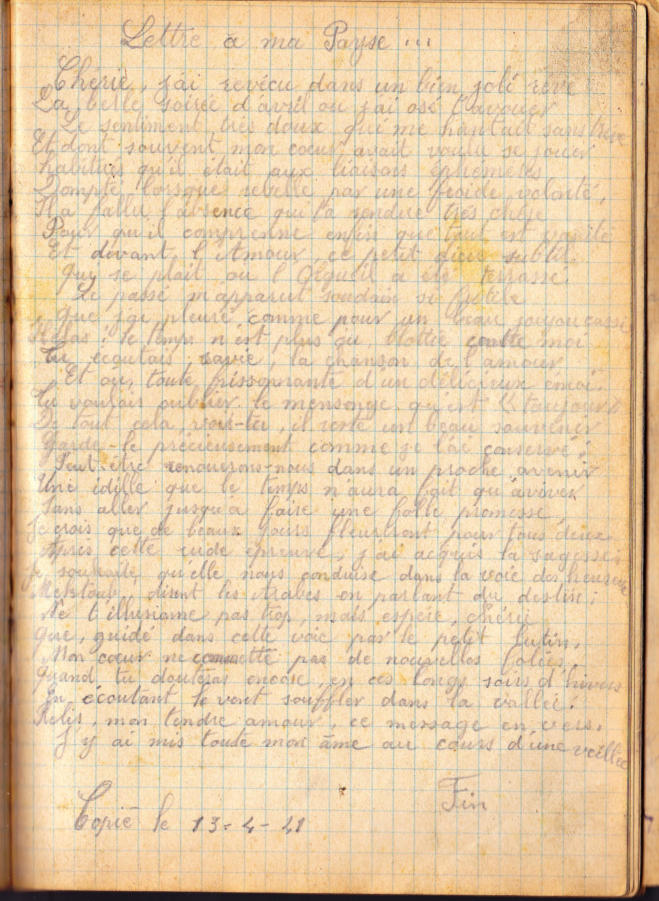 Lettre à ma Payse ...
Chérie, j'ai revécu dans un bien joli rêve
La belle soirée d'avril ou j'ai osé t'avouer
Le sentiment très doux qui me hantait sans trêve
Et dont souvent mon cœur avait voulu se jouer
Habitués qu'il était aux liaisons éphémères
Dompté lorsque rebelle par une froide volonté,
Il a fallu l'absence qui t'a rendue très chère
Pour qu'il comprenne enfin que tout est vanité
Et devant l'Amour, ce petit dieu subtil.
Qui se plait ou l'Orgueil a été terrassé
Le passé m'apparut soudain si futile
Que j'ai pleuré comme pour un beau joujou cassé
Hélas! le temps n'est plus ou, blottie contre moi
Tu écoutais ravie, la chanson de l'amour
Et où, toute frissonnante d'un délicieux émoi.
Tu voulais oublier le mensonge qu'est "toujours"
De tout cela, vois-tu, il reste un beau souvenir
Garde-le précieusement comme je l'ai conservé!
Peut-être renouerons-nous dans un proche avenir
Une idille que le temps n'aura fait qu'aviver
Sans aller jusqu'à faire une folle promesse,
Je crois que de beaux jours fleuriront pour tous deux
Après cette rude épreuve, j'ai acquis la sagesse;
Je souhaite qu'elle nous conduise dans la voie des heureux
Mektoub, disent les Arabes en parlant du destin;
Ne t'illusionne pas trop, mais espère, chérie
Que, guidé dans cette voie par le petit lutin,
Mon cœur ne commette pas de nouvelles folies,
Quand tu douteras encore, en ces longs soirs d'hivers
En écoutant le vent souffler dans la vallée!
Relis, mon tendre amour, ce message en vers.
J'y ai mis toute mon âme au cours d'une veillée
Fin
Copié le 13-4-41